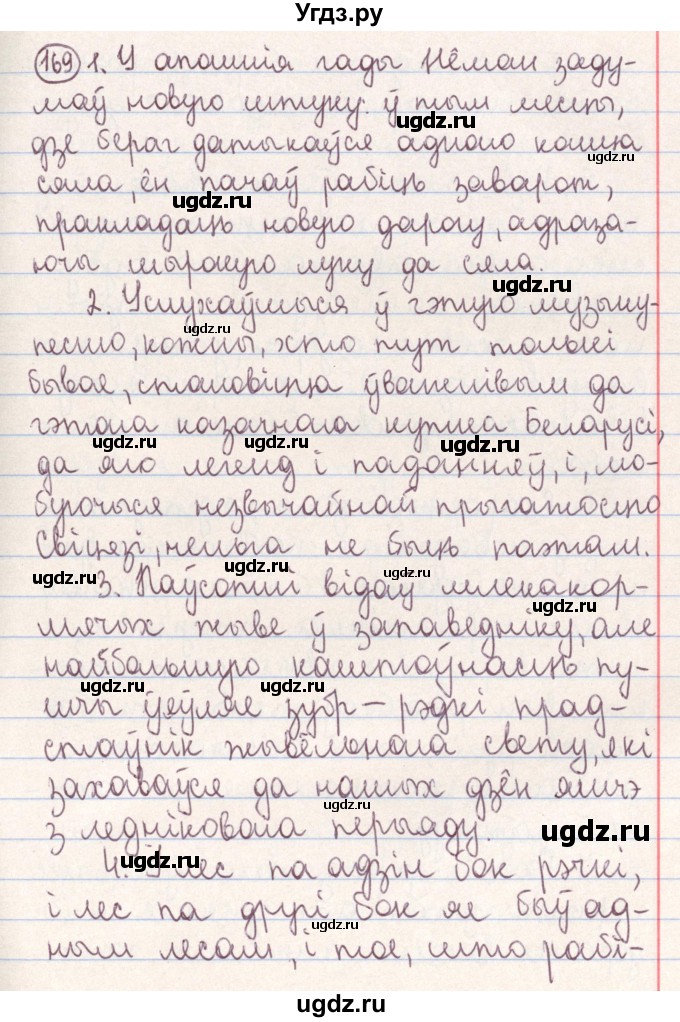 Угдз.ру
169 1. У апошнія гады Нёман заду-
маў новую штуку: ў тым месцы,
ugdz.ru
дзе бераг датыкаўся аднаго канца
ugdz.ru
сяла, ён пачаў рабіць заварот,
ugdz.ru
пракладаць новую дарогу, адраза-
ючы шырокую луку да сяла.
ugdz.ru
2. Услухаўшыся ў гэтую музыку-
ugdz.ru
песню, кожны, хто тут толькі
бывае, становіцца ўважлівым да
гэтага казачнага кутка Беларусі,
ugdz.ru ugdz.ru
да яго легенд і паданняў, і, лю-
буючыся незвычайнай прыгажосцю
Свіцязі, нельга не быць паэтам.
ugdz.ru ugdz.ru
3. Паўсотні відаў млекакор-
ugdz.ru
мячых жыве ў запаведніку, але
найбольшую каштоўнасць пу-
ugdz.ru ugdz.ru
шчы ўяўляе зубр – рэдкі прад-
стаўнік жывёльнага свету, які
захаваўся да нашых дзён яшчэ
ugdz.ru
з ледніковага перыяду.
ugdz.ru
4. І лес па адзін бок рэчкі,
ugdz.ru
і лес па другі бок як быў ад-
ugdz.ru
ным лесам, і тое, што рабі-
ugdz.ru